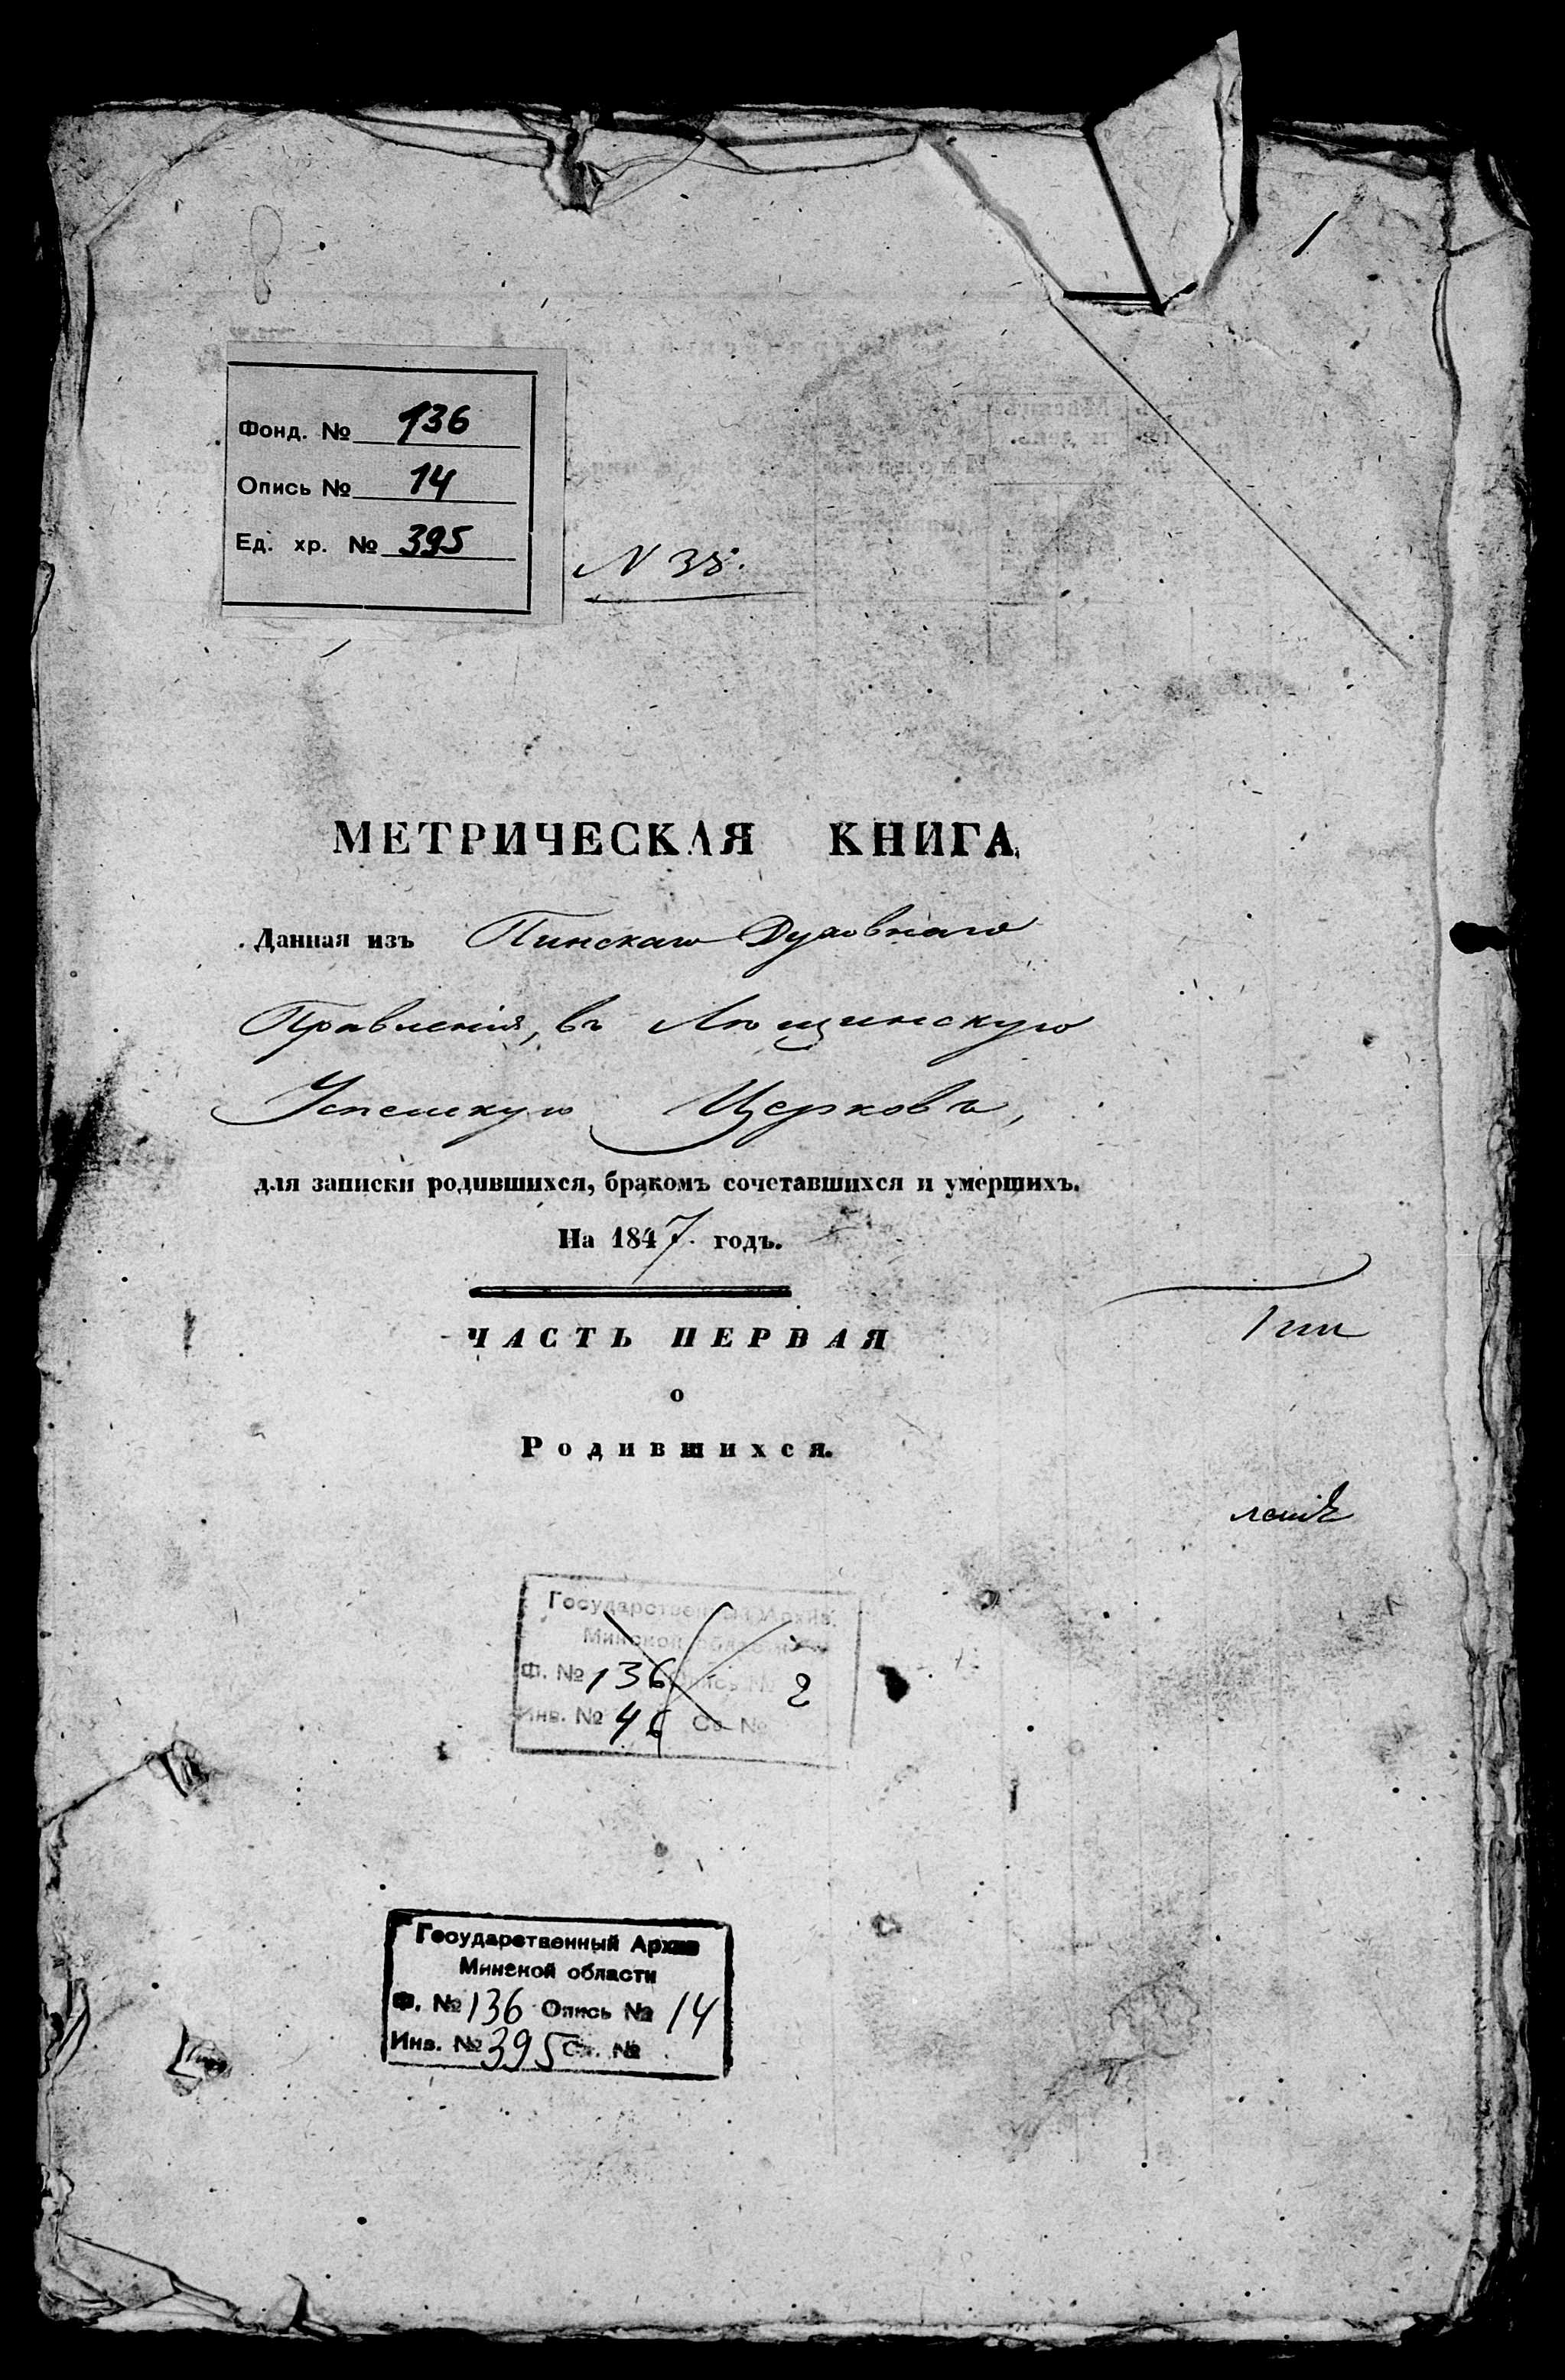 1
Фонд. № 136
Опись № 14
Ед. хр. № 395
N 38.
МЕТРИЧЕСКАЯ КНИГА,
Данная изъ Пинскаго Духовнаго
Правленія, въ Лющинскую
Успенскую Церковь,
для записки родившихся, бракомъ сочетавшихся и умершихъ.
На 1847 годъ.
ЧАСТЬ ПЕРВАЯ
о
Родившихся.
Государственный Архив
Минской области
Ф. № 136 Опись № 2
Инв. № 46 Св. №
Государственный Архив
Минской области
Ф. № 136 Опись № 14
Инв. № 395 Св. №